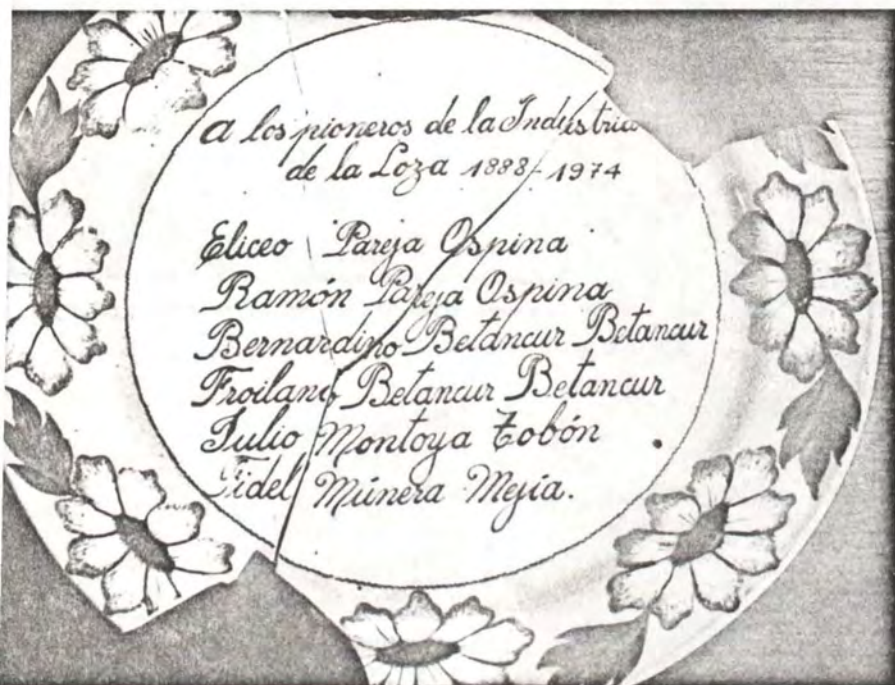 a los pioneros de la Industria
de la Loza 1888-1974
Eliceo Pareja Ospina
Ramón Pareja Ospina
Bernardino Betancur Betancur
Froilano Betancur Betancur
Julio Montoya Tobón
Fidel Múnera Mejía.